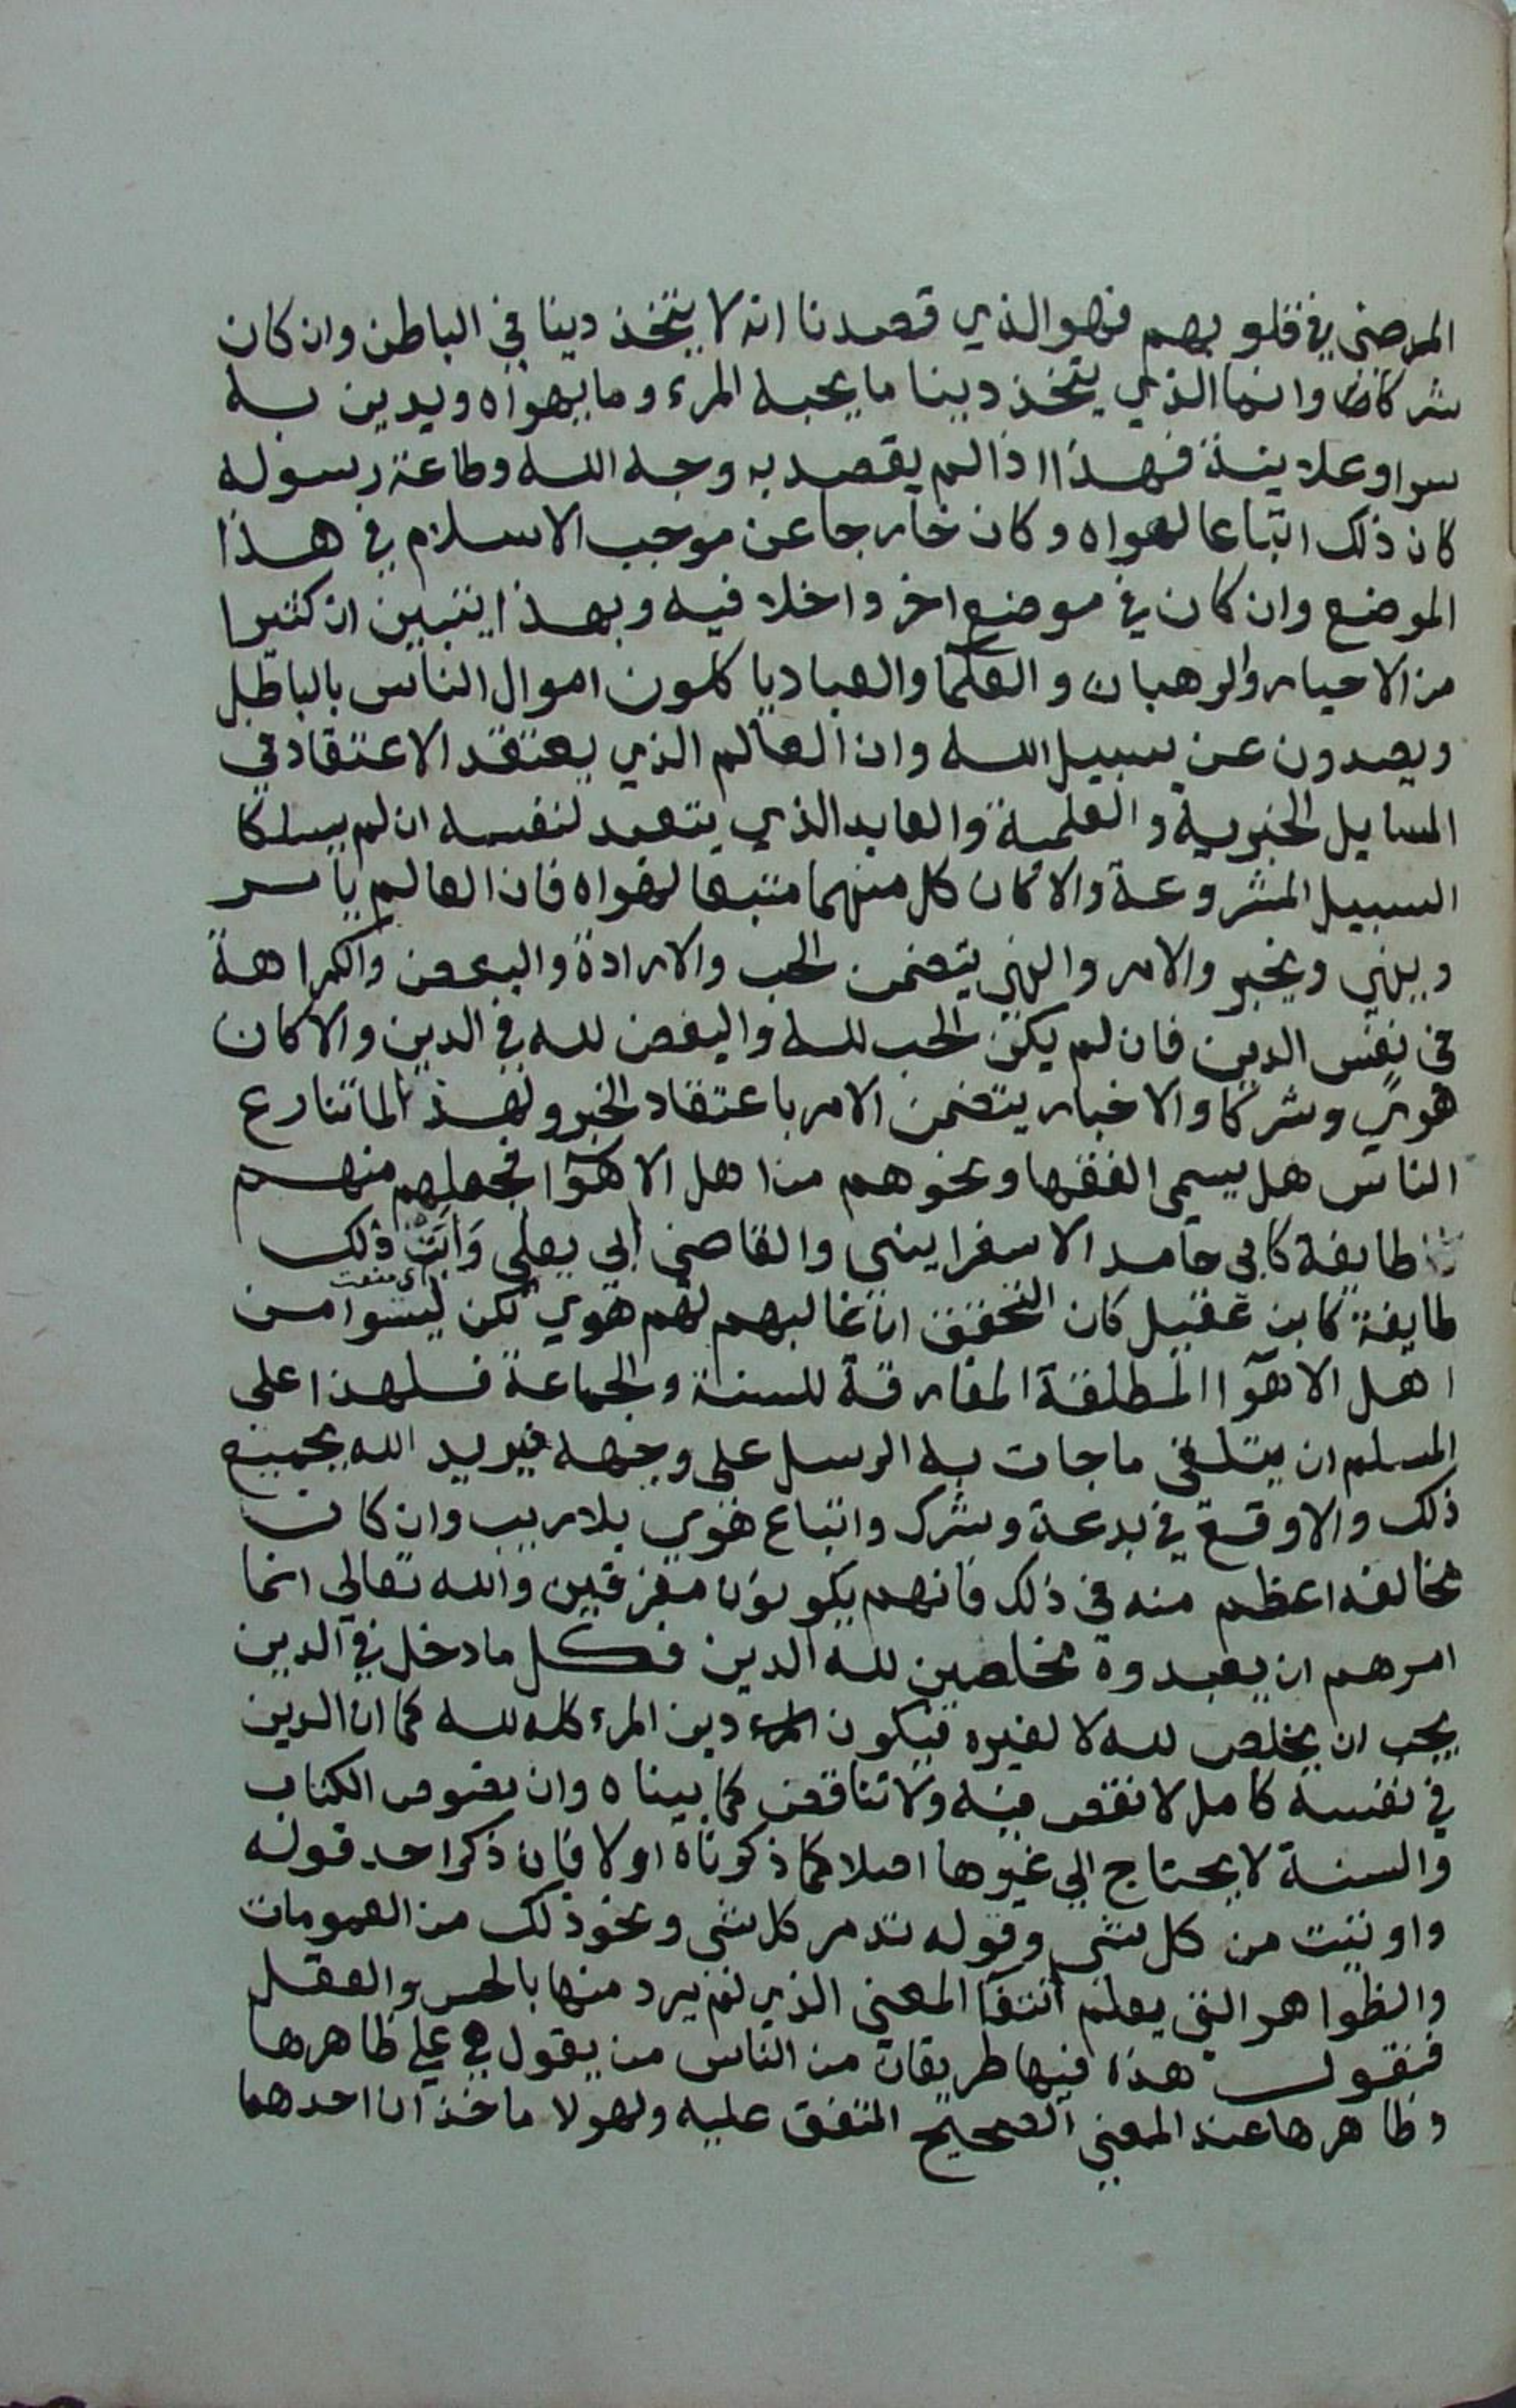 المرضى في قلوبهم فهو الذي قصدنا انه لا يتخذ دينا في الباطن وان كان
شركا وانما الذي يتخذ دينا ما يحبه المرء وما يهواه ويدين به
سرا وعلانية فهذا اذا لم يقصد به وجه الله وطاعة رسوله
كان ذلك اتباعا لهواه وكان خارجا عن موجب الاسلام في هذا
الموضع وان كان في موضع اخر داخلا فيه وبهذا يتبين ان كثيرا
من الاحبار والرهبان والعلما والعباد ياكلون اموال الناس بالباطل
ويصدون عن سبيل الله وان العالم الذي يعتقد الاعتقاد في
المسايل الخبرية والعلمية والعابد الذي يتعبد لنفسه ان لم يسلكا
السبيل المشروعة والا كان كل منهما متبعا لهواه فان العالم يامر
وينهي ويخبر والامر والنهي يتضمن الحب والارادة والبغض والكراهة
في نفس الدين فان لم يكن الحب لله والبغض لله في الدين والا كان
هوي وشركا والاخبار يتضمن الامر باعتقاد الخبر ولهذا لما تنازع
الناس هل يسمى الفقها ونحوهم من اهل الاهوا فجعلهم منهم
طايفة كابي حامد الاسفراييني والقاضي ابي يعلي وَابَتْ ذلك
اي منعت
طايفة كابن عقيل كان التحقيق ان غالبهم لهم هوي لكن ليسوا من
اهل الاهوآ المطلقة المفارقة للسنة والجماعة فلهذا على
المسلم ان يتلقى ما جات به الرسل على وجهه فيريد الله بجميع
ذلك والا وقع في بدعة وشرك واتباع هوي بلا ريب وان كان
مخالفه اعظم منه في ذلك فانهم يكونون مفترقين والله تعالي انما
امرهم ان يعبدوه مخلصين لله الدين فكل ما دخل في الدين
يجب ان يخلص لله لا لغيره فيكون دين المرء كله لله كما ان الدين
في نفسه كامل لا نقص فيه ولا تناقض كما بيناه وان نصوص الكتاب
والسنة لا يحتاج الي غيرها اصلا كما ذكرناه اولا فان ذكر احد قوله
واوتيت من كل شي وقوله تدمر كل شي ونحو ذلك من العمومات
والظواهر التي يعلم انتفآ المعنى الذي لم يرد منها بالحس والعقل
فنقول هذه فيها طريقان من الناس من يقول هي علي ظاهرها
وظاهرها عند المعني الصحيح المتفق عليه ولهولا ماخذان احدهما